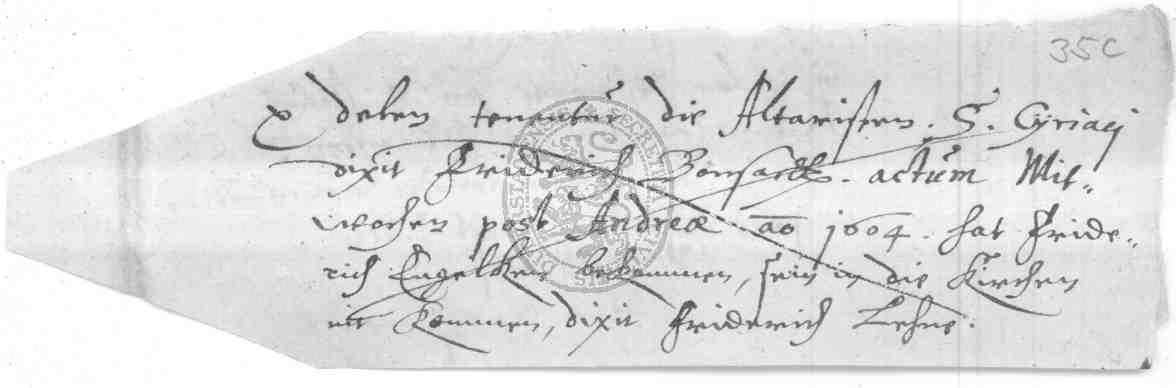 35C
x delen tenentur die Altaristen. S. Cyriaci
dixit Friderich Bonsack. actum Mit=
wochen post Andreæ ao 1604. hat Fride=
rich Engelken bekommen, sein in die Kirchen
nit kommen, dixit Friderich Lehne.